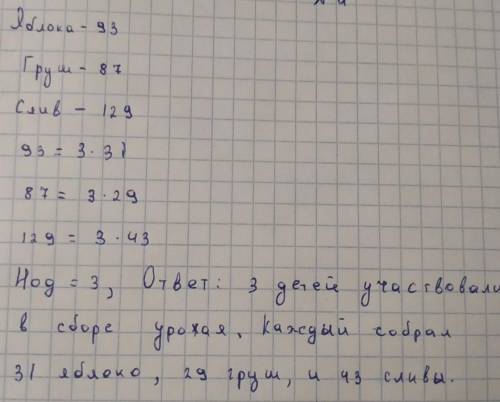 Яблока - 93
Груш - 87
Слив - 129
93 = 3 · 31
87 = 3 · 29
129 = 3 · 43
Нод = 3, Ответ: 3 детей участвовали
в сборе урожая, каждый собрал
31 яблоко, 29 груш, и 43 сливы.